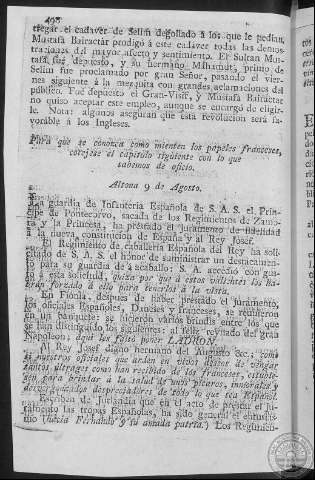 498
tregar el cadaver de Selim degollado á los que le pedian.
Mustafá Bairactár prodigó á este cadaver todas las demos-
traciones del mayor afecto y sentimiento. El Sultan Mus-
tafá fue depuesto, y su hermano Mahamut, primo de
Selim fue proclamado por gran Señor, pasando el vier-
nes siguiente á la mezquita con grandes aclamaciones del
público. Fue depuesto el Gran-Visir, y Mustafá Bairactar
no quiso aceptar este empleo, aunque se encargó de elegir-
le. Nota: algunos aseguran que esta revolucion será fa-
vorable á los Ingleses.
Para que se conozca como mienten los papeles franceses,
cotejese el capitulo siguiente con lo que
sabemos de oficio.
Altona 9 de Agosto.
La guardia de Infanteria Española de S. A. S. el Prin-
cipe de Pontecorvo, sacada de los Regimientos de Zamo-
ra y la Princesa, ha prestado el juramento de fidelidad
á la nueva constitucion de España y al Rey Josef.
El Regimiento de caballería Española del Rey ha soli-
citado de S. A. S. el honor de suministrar un destacamen-
to para su guardia de á caballo: S. A. accedió con gus-
to á esta solicitud; quiza por que á estos valientes los ha-
brán forzado á ello para tenerlos á la vista.
En Fionia, despues de haber prestado el juramento,
los oficiales Españoles, Dineses y Franceses, se reunieron
en un banquete: se hicieron varios brindis entre los que
se han distinguido los siguientes: al feliz reynado del gran
Napoleon; aqui les faltó poner LADRON.
Al Rey Josef digno hermano del Augusto &c.; como
si nuestros oficiales que arden en vivos deseos de vengar
tantos ultrages como han recibido de los franceses, estubie-
sen para brindar á la salud de unos picaros, inmorales y
desvergonzados despreciadores de todo lo que sea Español.
Escriben de Jutlandia que en el acto de prestar el ju-
ramento las tropas Españolas, ha sido general el entusias-
mo (hácia Fernando y su amada patria.) Los Regimien-